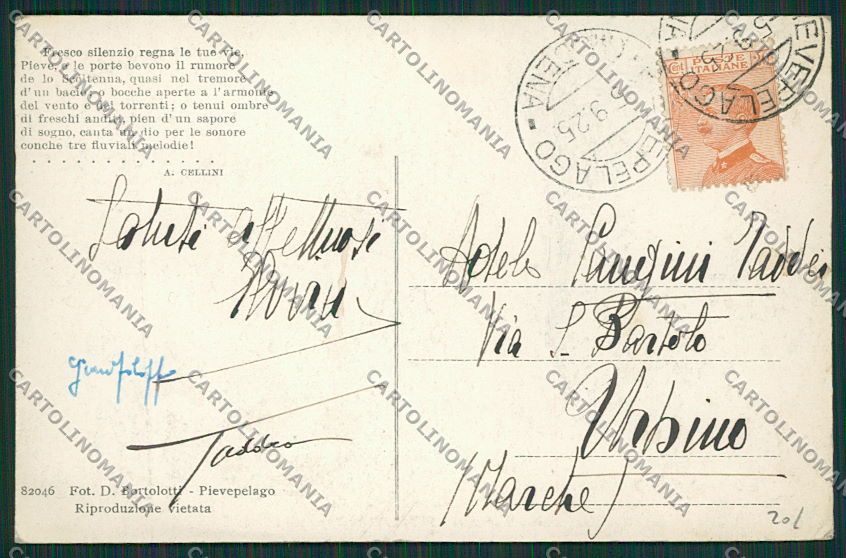 Fresco silenzio regna le tue vie,
Pieve, e le porte bevono il rumore
de lo Scottenna, quasi nel tremore
d'un bacio, o bocche aperte a l'armonie
del vento e dei torrenti; o tenui ombre
di freschi anditi, pien d'un sapore
di sogno, canta un dio per le sonore
conche tre fluviali melodie!
A. CELLINI
Saluti affettuosi
Taddeo
82046 Fot. D. Bortolotti - Pievepelago
Riproduzione vietata
PIEVEPELAGO
MODENA
9.25
POSTE
ITALIANE
Adele Taddei
Via S. Bartolo
Urbino
(Marche)
20/
CARTOLINOMANIA